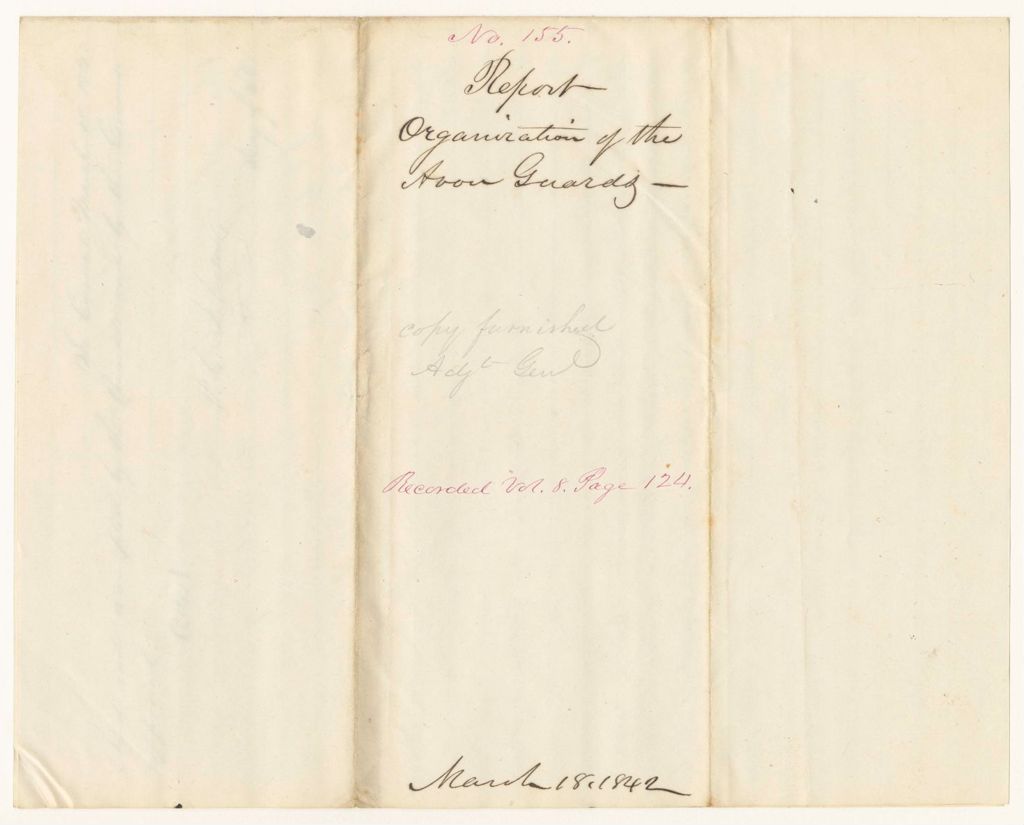 No. 155.
Report
Organization of the
Avon Guards —
copy furnished
Adjt Genl
Recorded Vol. 8. Page 124.
March 18. 1842